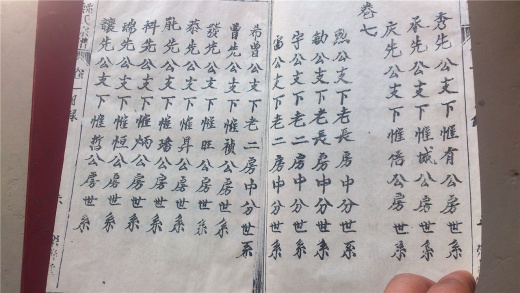 秀先公支下惟有公房世系
承先公支下惟城公房世系
庆先公支下惟倍公房世系
卷七
熙公支下老長房中分世系
勧公支下老長房中分世系
宇公支下老二房中分世系
當公支下老二房中分世系
希曾公支下老二房中分世系
曾先公支下惟禎公房世系
發先公支下惟旺公房世系
泰先公支下惟昇公房世系
龍先公支下惟墙公房世系
科先公支下惟炳公房世系
瑞先公支下惟恒公房世系
讓先公支下惟哲公房世系